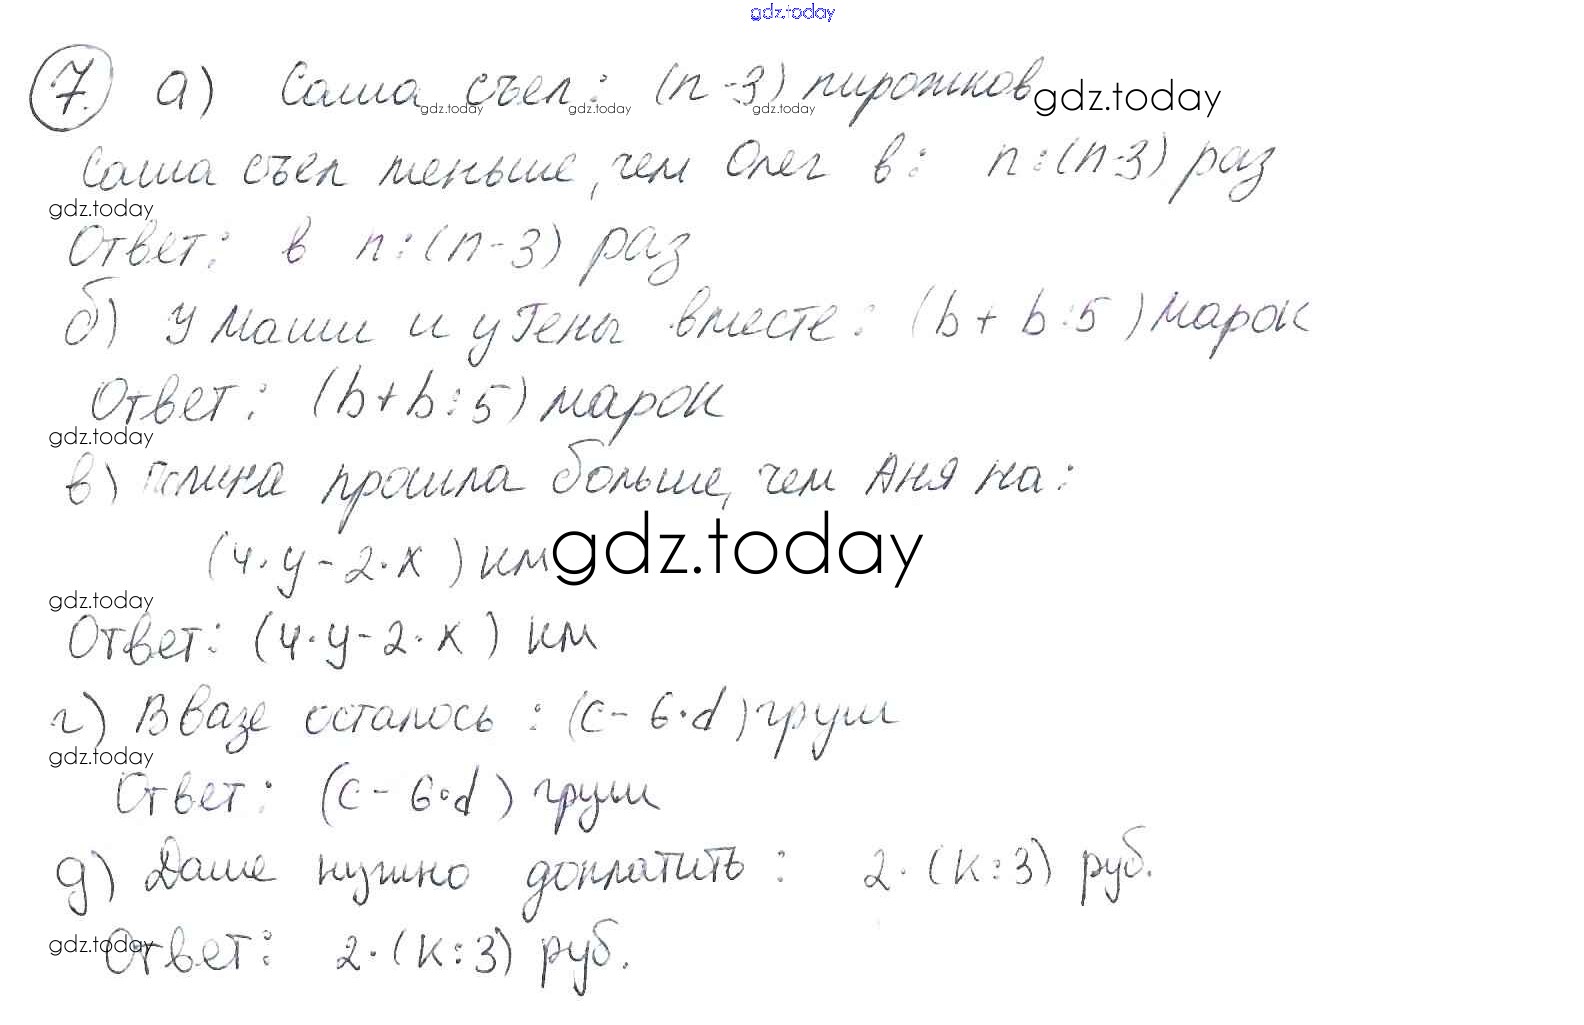 gdz.today
7. а) Саша съел: (n-3) пирожков gdz.today
gdz.today gdz.today gdz.today
Саша съел меньше, чем Олег в: n:(n-3) раз
gdz.today
Ответ: в n:(n-3) раз
б) У Маши и у Гены вместе: (b+b:5) марок
Ответ: (b+b:5) марок
gdz.today
в) Полина прошла больше, чем Аня на:
(4·y-2·x) км gdz.today
gdz.today
Ответ: (4·y-2·x) км
г) В вазе осталось: (c-6·d) груш
gdz.today
Ответ: (c-6·d) груш
д) Даше нужно доплатить: 2·(k:3) руб.
gdz.today
Ответ: 2·(k:3) руб.